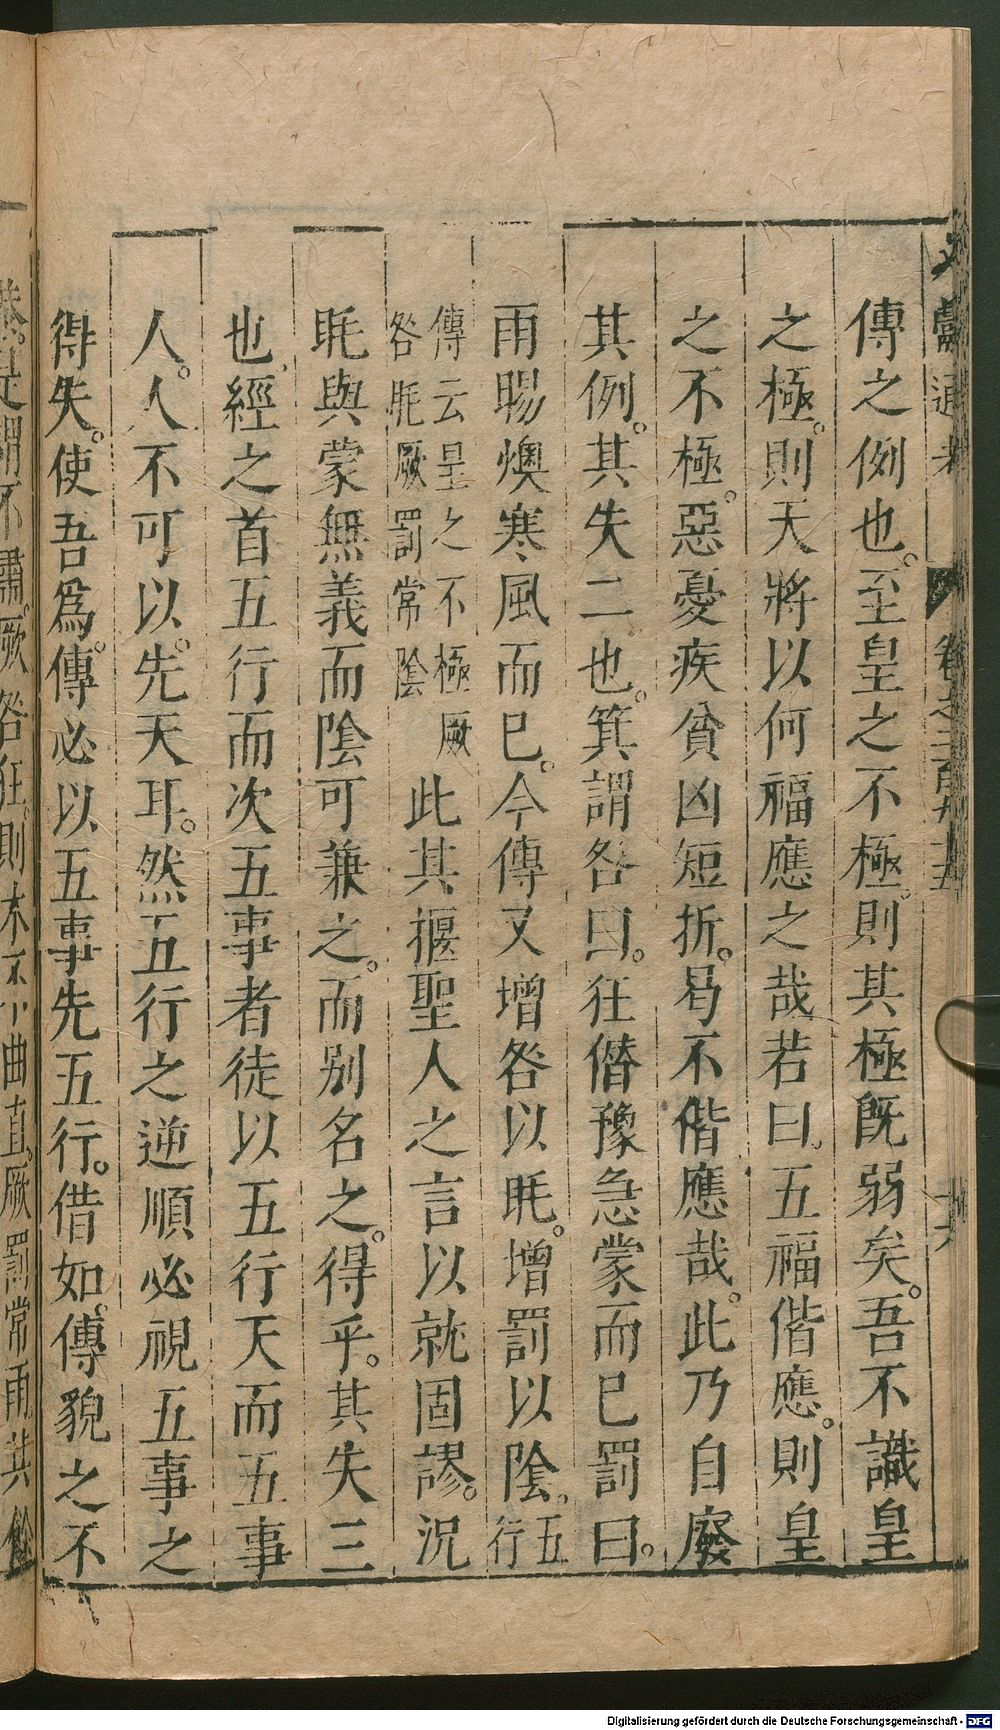 傳之例也。至皇之不極。則其極旣弱矣。吾不識皇
之極。則天將以何福應之哉若曰。五福偕應。則皇
之不極。惡憂疾貧凶短折。曷不偕應哉。此乃自廢
其例。其失二也。箕謂咎曰。狂僭豫急蒙而已罰曰。
雨暘燠寒風而已。今傳又增咎以眊。增罰以陰。五行
傳云皇之不極厥咎眊厥罰常陰此其揠聖人之言以就固謬。況
眊與蒙無義而陰可兼之。而别名之。得乎。其失三
也。經之首五行而次五事者徒以五行天而五事
人。人不可以先天耳。然五行之逆順必視五事之
得失。使吾爲傳。必以五事先五行。借如傳貌之不
恭。是謂不肅。厥咎狂。則木不曲直。厥罰常雨。其餘
文獻通考
卷之二百九十五
Digitalisierung gefördert durch die Deutsche Forschungsgemeinschaft - DFG